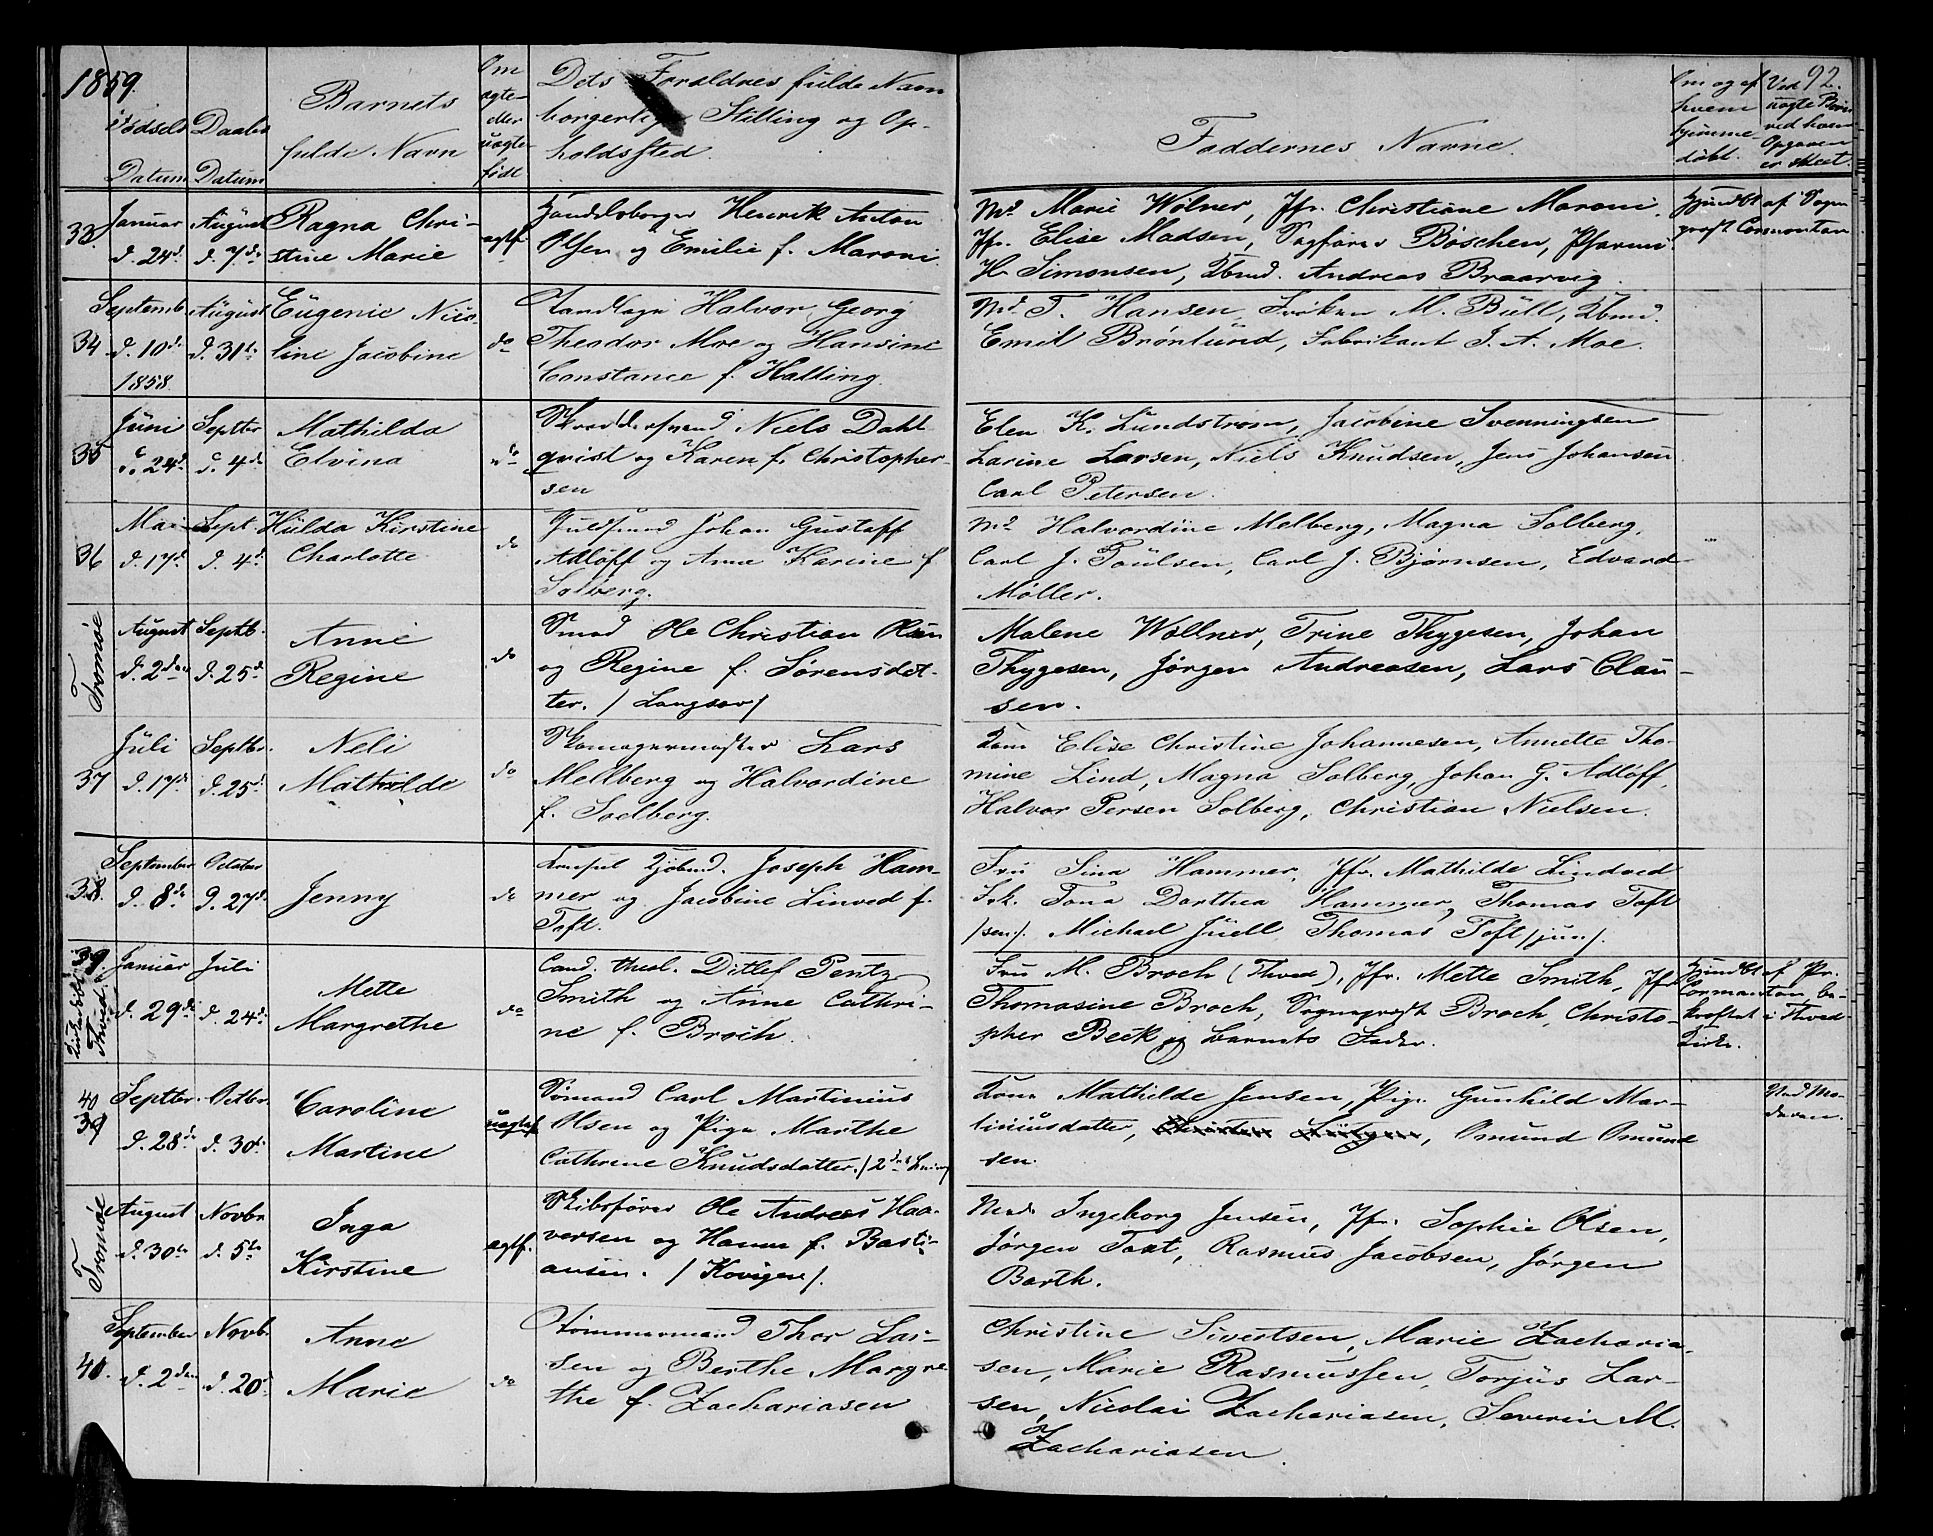 1859.
92.
Fødsels Datum
Daabs Datum
Barnets fulde Navn
Om ægte eller uægte født
Dets Forældres fulde Navn borgerlige Stilling og Opholdssted.
Faddernes Navne.
Om og af hvem hjemmedøbt.
Ved uægte Børn ved hvem Opgaven er skeet.
33. Januar d. 24d. August d. 7de Ragna Christine Marie ægtf.
Handelsborger Henrik Anton
Olsen og Emilie f. Maroni.
Md Marie Wölner, Jfr. Christiane Maroni,
Jfr. Elise Madsen, Sagfører Böschen,
H. Simonsen, Kbmd. Andreas Braarvig.
Hjmdbt af Sogneprost Cormontan
34 Septemb. d. 10de 1858 August d. 31te Eugenie Nicoline Jacobine do
Tandlæge Halvor Georg
Theodor Moe og Hansine
Constance f. Halling.
Md T. Hansen, Frøken M. Büll, Kbmd.
Emil Brønlund, Fabrikant J. A. Moe.
35 Juni d. 24d. Septbr d. 4de Mathilda Elvina do
Skræddersvend Niels Dahlqvist og Karen f. Christophersen
Elen K. Lundstrøm, Jacobine Svenningsen
Larine Larsen, Niels Knudsen, Jens Johansen
Carl Petersen.
36 Mai d. 17d. Sept. d. 4d. Hulda Kirstine Charlotte do
Guldsmed Johan Gustaff
Adlöff og Anne Karine f.
Solberg.
Md Halvordine Melberg, Magna Solberg,
Carl J. Poulsen, Carl J. Bjørnsen, Edvard
Møller.
Tromøe August d. 2den Septb. d. 25d Anne Regine do
Smed Ole Christian Olsen
og Regine f. Sørensdatter. / Langsæv /
Malene Wøllner, Trine Thygesen, Johan
Thygesen, Jørgen Andreasen, Lars Clausen.
37 Juli d. 17d. Septbr. d. 25d. Neli Mathilde do
Skomagermester Lars
Mellberg og Halvordine
f. Soelberg.
Kone Elise Christine Johannesen, Annette Thomine Lind, Magna Solberg, Johan G. Adlöff,
Halvor Persen Solberg, Christian Nielsen.
38. September d. 8de October d. 27d. Jenny do
Consul Kjøbmd. Joseph Hammer og Jacobine Linved f.
Toft.
Fru Sina Hammer, Jfr. Mathilde Lindved
Frk. Tona Dorthea Hammer, Thomas Toft
/sen/. Michael Juell Thomas Toft /jun/.
39. Januar d. 29de Juli d. 24de Mette Margrethe do
Cand. theol. Ditlef Pentz
Smith og Anne Cathrine f. Broch.
Fru M. Broch (Thved), Jfr. Mette Smith, Jfr
Thomasine Broch, Sogneprest Broch, Christopher Beck og Barnets Fader.
Hjmdbt af Pr. Cormontan, bekræftet i Thved Kirke.
40 39 Septbr. d. 28de Octbr. d. 30te Caroline Martine uægtef
Sømand Carl Martinius
Olsen og Pige Marthe
Cathrine Knudsdatter.
Kone Mathilde Jensen, Pige Gunhild Martiniusdatter, Omund Omundsen.
Ved Moderen.
Tromøe August d. 30te Novbr d. 5te Inga Kirstine ægtf.
Skibsfører Ole Andreas Haaversen og Hanne f. Bastiansen. / Kovigen /.
Md. Ingeborg Jensen, Jfr. Sophie Olsen,
Jørgen Taxt, Rasmus Jacobsen, Jørgen
Barth.
40. September d. 2den Novbr. d. 20d Anne Marie do
Tømmermand Thor Larsen og Berthe Margrethe f. Zachariasen
Christine Sivertsen, Marie Zachariasen, Marie Rasmussen, Torjus Larsen, Nicolai Zachariasen, Severin M.
Zachariasen.